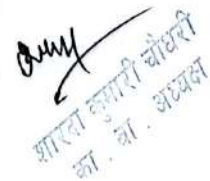 शारदा कुमारी चौधरी
का . वा . अध्यक्ष